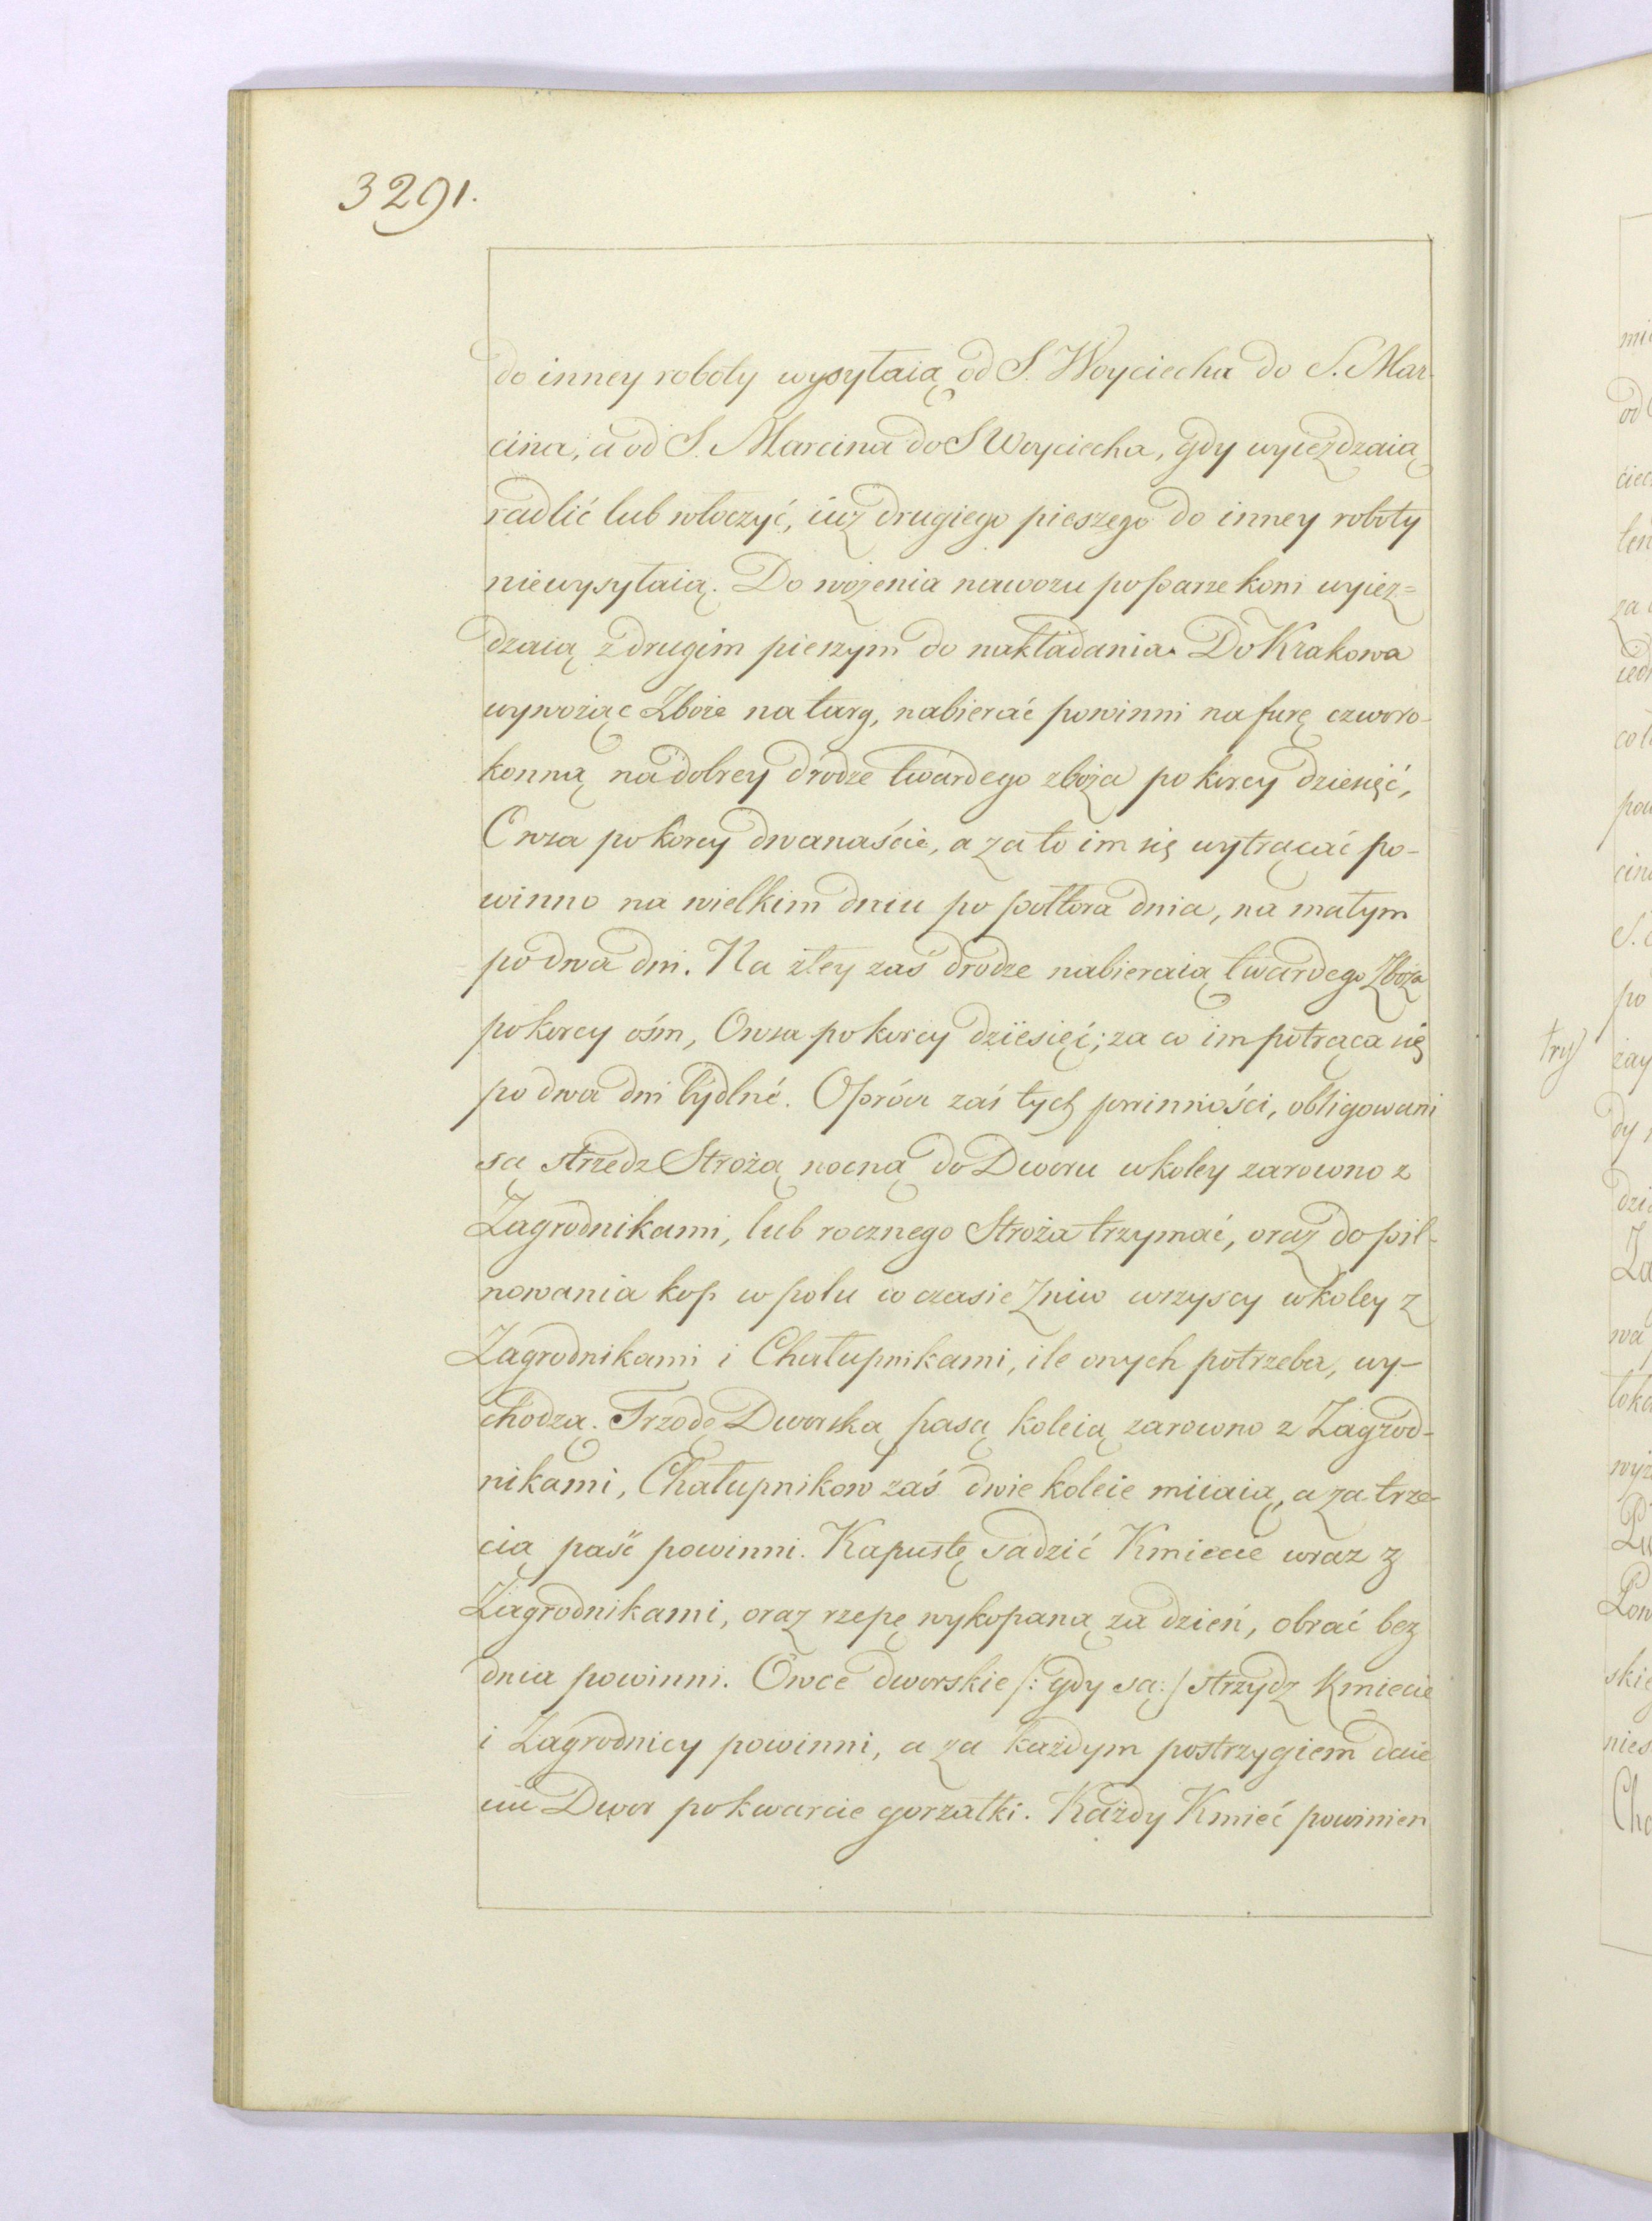 3291.
do inney roboty wysyłaią od S. Woyciecha do S. Mar-
cina, a od S. Marcina do S Woyciecha, gdy wyieżdzaią
radlić lub włoczyć, iuż drugiego pieszego do inney roboty
niewysyłaią. Do wożenia nawozu po parze koni wyież=
dzaią z drugim pieszym do nakładania. Do Krakowa
wywożąc Zboże na targ, nabierać powinni na furę czworo-
konną na dobrey drodze twardego zboża po korcy dziesięć,
Owsa po korcy dwanaście, a za to im się wytrącać po-
winno na wielkim dniu po połtora dnia, na małym
po dwa dni. Na złey zaś drodze nabieraią twardego Zboża
po korcy ośm, Owsa po korcy dziesięć; za co im potrąca się
po dwa dni tydlne. Oprócz zaś tych powinności, obligowani
są strzedz Strożą nocną do Dworu w koley zarowno z
Zagrodnikami, lub rocznego Stroża trzymać, oraz do pil-
nowania kop w polu w czasie Zniw wszyscy w koley z
Zagrodnikami i Chałupnikami, ile onych potrzeba, wy-
chodzą. Trzodę Dworską pasą koleią zarowno z Zagrod-
nikami, Chałupnikow zaś dwie koleie miiaią, a za trze-
cią paść powinni. Kapustę sadzić Kmiecie wraz z
Zagrodnikami, oraz rzepę wykopaną za dzień, obrać bez
dnia powinni. Owce dworskie /: gdy są :/ strzydz Kmiecie
i Zagrodnicy powinni, a za każdym postrzygiem daie
im Dwor po kwarcie gorzałki. Każdy Kmieć powinien
try